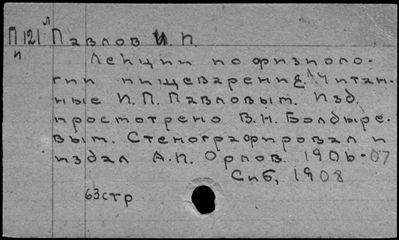 П121 л Павлов И. П.
и
Лекции по физиоло-
гии пищеварения. Читан-
ные И. П. Павловым. Изд.
просмотрено В. Н. Болдыре-
вым. Стенографировал и
издал А. П. Орлов. 1906-07
Спб, 1908
63стр